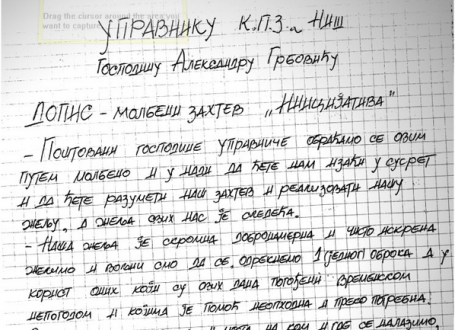 Drag the cursor around the area you
want to capture
УПРАВНИКУ К.П.З. - НИШ
Господину Александру Грбовићу
ДОПИС - молбени захтев "Иницијатива"
- Поштовани господине управниче обраћамо се овим
путем молбено и у нади да ћете нам изаћи у сусрет
и да ћете разумети наш захтев и реализовати нашу
жељу, а жеља свих нас је следећа.
- Наша жеља је скромна добронамерна и чисто искрена
желимо и вољни смо да се одрекнемо 1 (једног) оброка а у
корист оних који су ових дана погођени временском
непогодом и којима је помоћ неопходна и преко потребна.
на ком и где се налазимо,